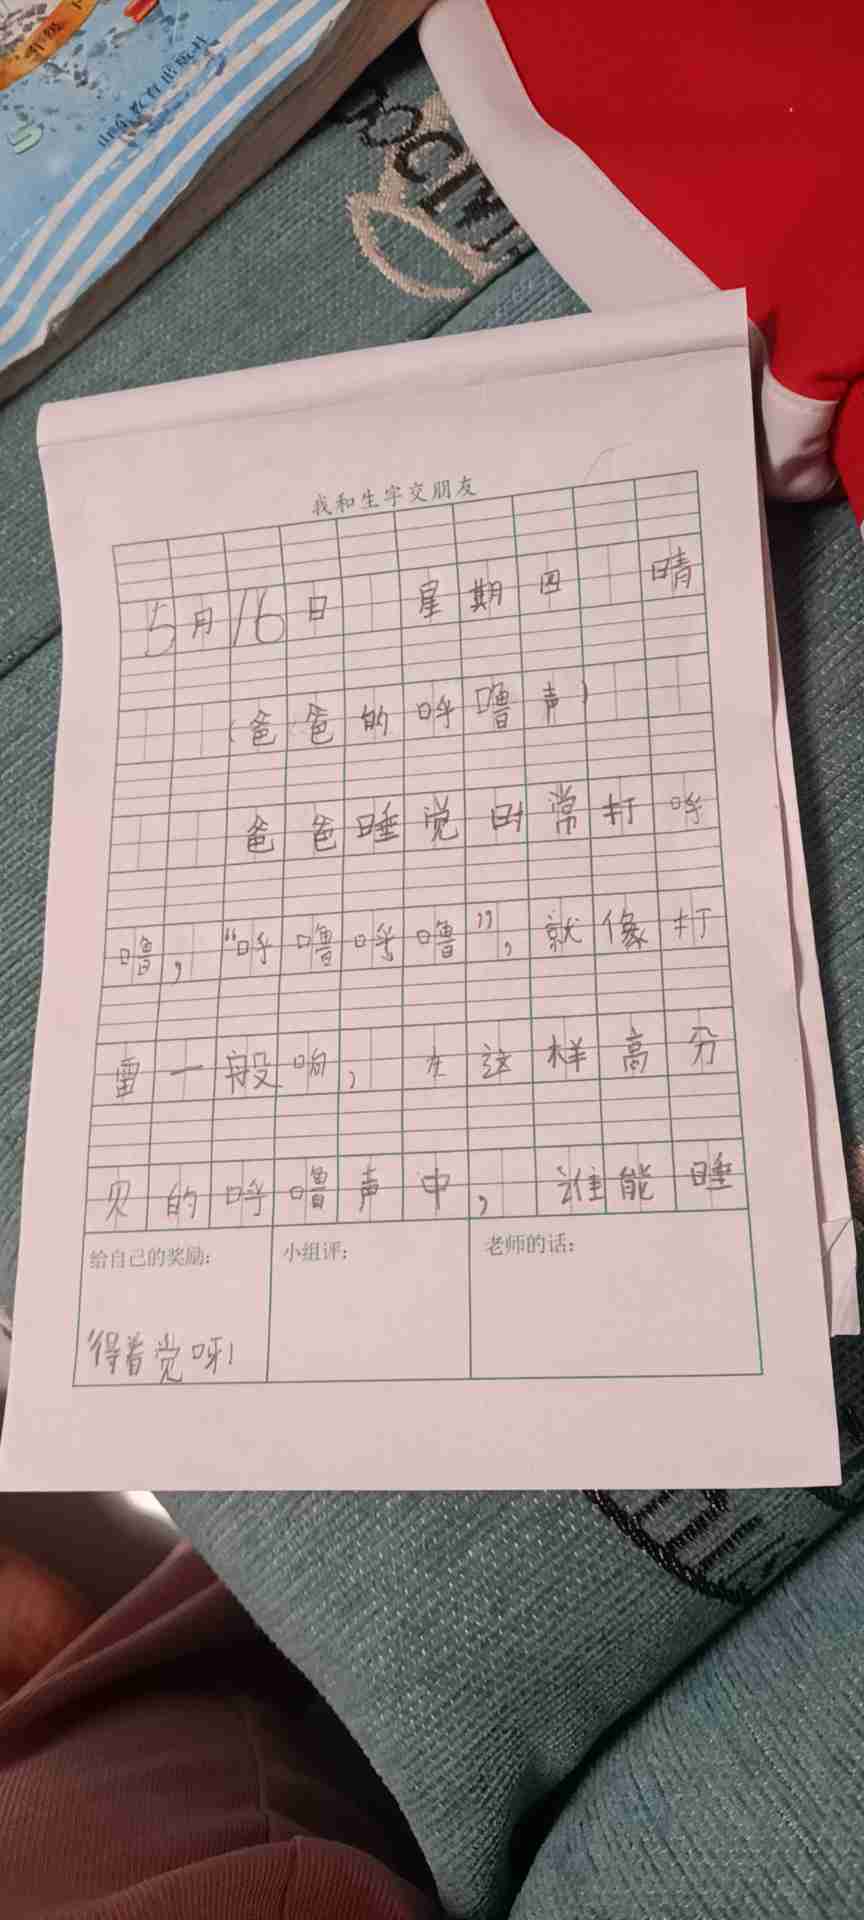 山东教育出版社
我和生字交朋友
5月16日 星期四 晴
(爸爸的呼噜声)
爸爸睡觉时常打呼
噜,“呼噜呼噜”,就像打
雷一般响,在这样高分
贝的呼噜声中,谁能睡
给自己的奖励:
小组评:
老师的话:
得着觉呀!